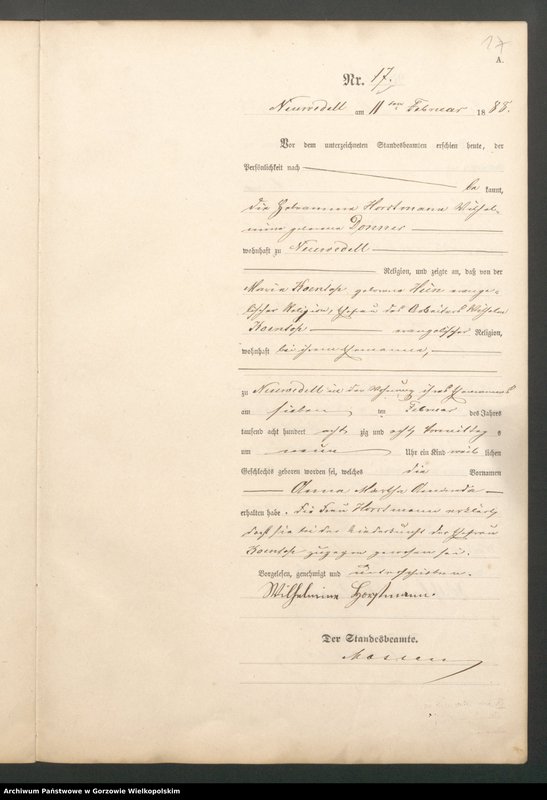 17
A.
Nr. 17.
Neuwedell am 11ten Februar 1888.
Vor dem unterzeichneten Standesbeamten erschien heute, der
Persönlichkeit nach
be kannt,
die Hebamme Horstmann Wilhel-
mine geborene Donner
wohnhaft zu Neuwedell
Religion, und zeigte an, daß von der
Maria geborene Hein evange-
lischer Religion, Ehefrau des Arbeiters Wilhelm
evangelischer Religion,
wohnhaft bei ihrem Ehemanne,
zu Neuwedell in der Wohnung ihres Ehemannes
am sieben ten Februar des Jahres
tausend acht hundert acht zig und acht Vormittag s
um neun Uhr ein Kind weib lichen
Geschlechts geboren worden sei, welches die Vornamen
Anna Martha Amanda
erhalten habe. Die Frau Horstmann erklärt,
daß sie bei der Niederkunft der Ehefrau
zugegen gewesen sei.
Vorgelesen, genehmigt und unterschrieben.
Wilhelmine Horstmann.
Der Standesbeamte.
Archiwum Państwowe w Gorzowie Wielkopolskim